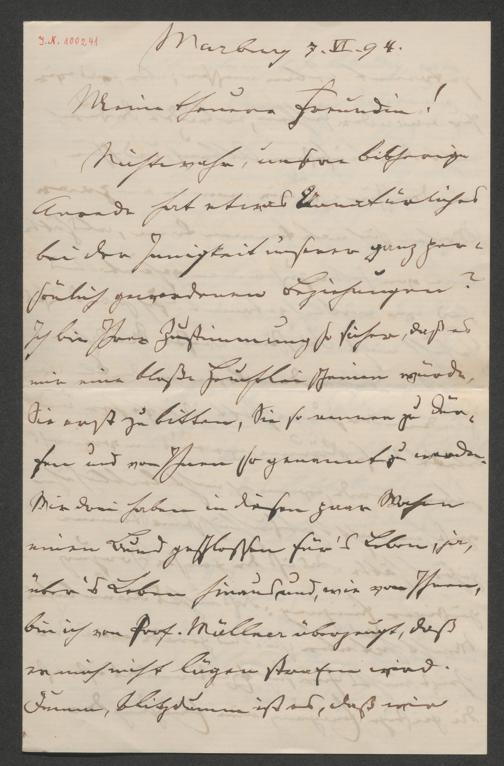 J.N. 100241
Marburg 7. VI. 94.
Meine theuere Freundin!
Nichtwahr, unsere bisherige
Anrede hat etwas Unnatürliches
bei der Innigkeit unserer ganz per-
sönlich gewordenen Beziehungen?
Ich bin Ihrer Zustimmung so sicher, daß es
mir eine bloße Heuchlei scheinen würde,
Sie erst zu bitten, Sie so nennen zu dür-
fen und von Ihnen so genannt zu werden.
Wir drei haben in diesen paar Wochen
einen Bund geschlossen für's Leben, ja,
über's Leben hinaus und, wie von Ihnen,
bin ich von Prof. Müllner überzeugt, daß
er mich nicht lügen strafen wird.
Dumm, blitzdumm ist es, daß wir